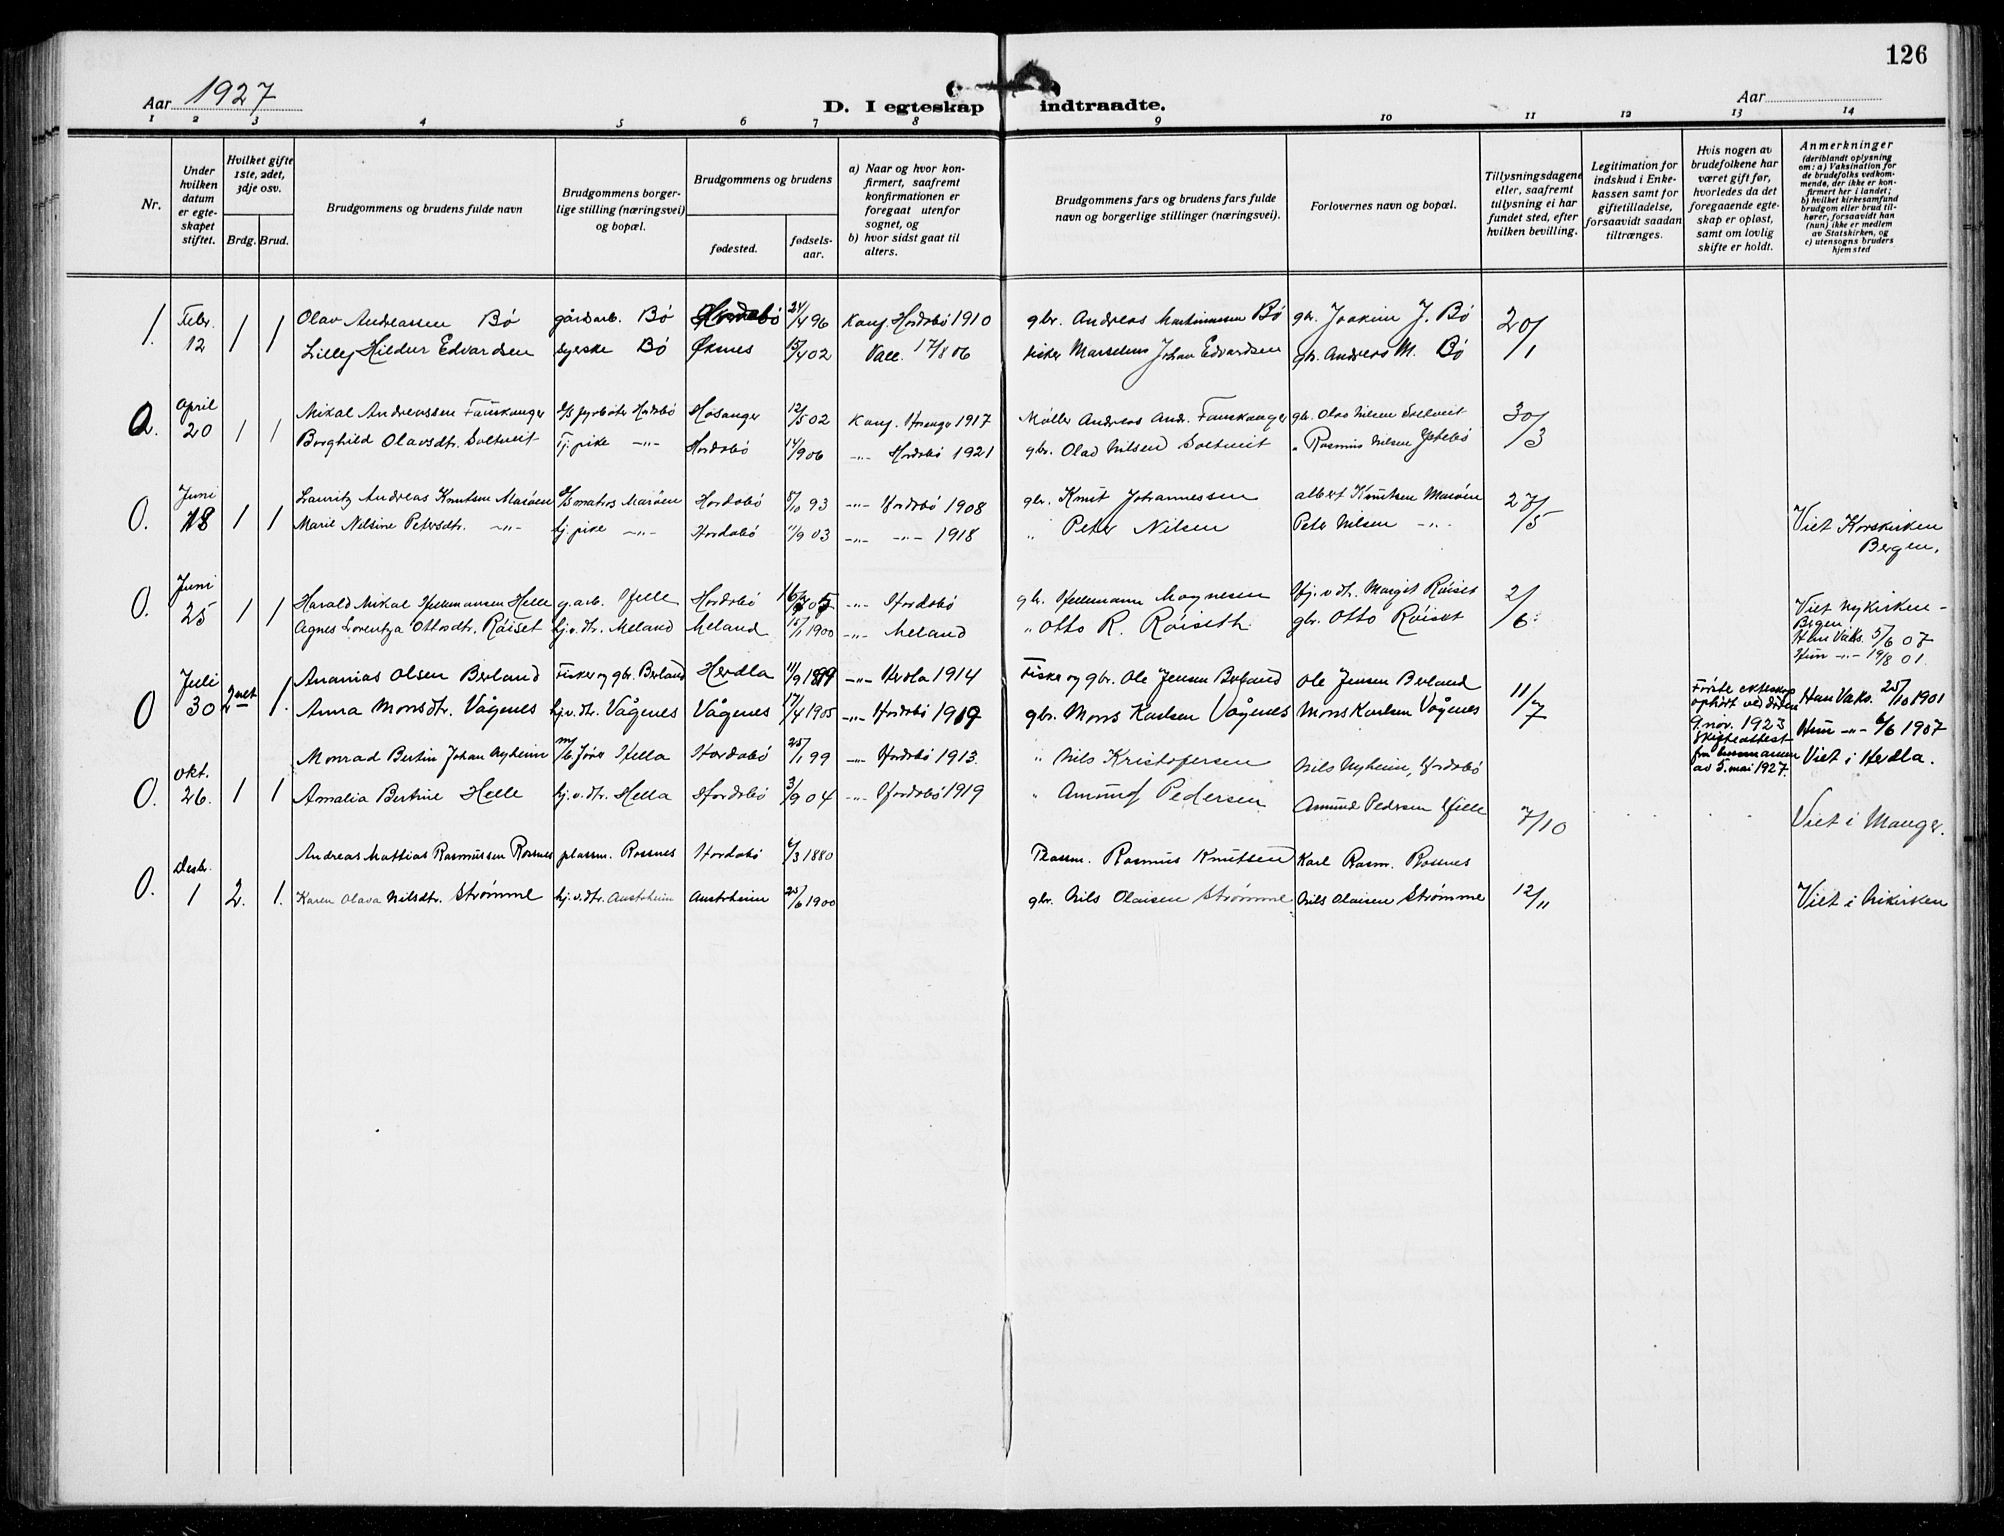 126
Aar 1927
D. I egteskap indtraadte.
Aar
1 2 3 4 5 6 7 8 9 10 11 12 13 14
Nr.
Under hvilken datum er egteskapet stiftet.
Hvilket gifte 1ste, 2det, 3dje osv.
Brdg. Brud.
Brudgommens og brudens fulde navn
Brudgommens borgerlige stilling (næringsvei) og bopæl.
Brudgommens og brudens
fødested.
fødselsaar.
a) Naar og hvor konfirmert, saafremt konfirmationen er foregaat utenfor sognet, og
b) hvor sidst gaat til alters.
Brudgommens fars og brudens fars fulde navn og borgerlige stillinger (næringsvei).
Forlovernes navn og bopæl.
Tillysningsdagene eller, saafremt tillysning ei har fundet sted, efter hvilken bevilling.
Legitimation for indskud i Enkekassen samt for giftetilladelse, forsaavidt saadan tiltrænges.
Hvis nogen av brudefolkene har været gift før, hvorledes da det foregaaende egteskap er opløst, samt om lovlig skifte er holdt.
Anmerkninger
(deriblandt oplysning om: a) Vaksination for de brudefolks vedkommende, der ikke er konfirmert her i landet; b) hvilket kirkesamfund brudgom eller brud tilhører, forsaavidt han (hun) ikke er medlem av Statskirken, og c) utensogns bruders hjemsted
1. Febr. 12 1 1 Olav Andreassen Bø gårdarb. Bø Hordabø 24/4 96 Konf. Hordabø 1910 gbr. Andreas Martinussen Bø gbr. Joakim J. Bø 20/1
Lilley Hildur Edvardsen syerske Bø Øksnes 15/4 02 Vacc. 17/8 06 fisker Marselius Johan Edvardsen gbr. Andreas M. Bø
2. April 20 1 1 Mikal Andreassen Fauskanger d/s fyrbøter Hordabø Hosanger 12/5 02 Konf. 1917 Møller Andreas And. Fauskanger gbr. Olav Nilsen Soltveit 30/3
Borghild Olavsdtr. Soltveit tj. pike -"- Hordabø 14/9 06 -"- Hordabø 1921 gbr. Olav Nilsen Soltveit " Rasmus Nilsen
0. Juni 18 1 1 Lauritz Andreas Knutsen Marøen d/s matros Marøen Hordabø 8/10 93 -"- Hordabø 1908 gbr. Knut Johannessen Albert Knutsen Marøen 27/5
Marie Nilsine Petersdtr. -"- tj. pike -"- Hordabø 11/9 03 -"- -"- 1918 " Peter Nilsen Peter Nilsen -"- Viet Korskirken Bergen.
0. Juni 25 1 1 Harald Mikal Hellemansen Helle g.arb. Helle Hordabø -"- Hordabø gbr. Hellemann Magnesen Hj.v.dtr. Margit Røiset 2/6
Agnes Lorentza Ottosdtr. Røiset hj.v.dtr. Meland Meland 15/1 1900 -"- Meland " Otto R. Røiseth gbr. Otto Røiset Viet Nykirken - Bergen
Han Vaks. 5/6 07
Hun -"- 19/8 01.
0 Juli 30 2net 1. Ananias Olsen Berland Fisker og gbr. Berland Herdla -"- Herdla 1914 Fisker og gbr. Ole Jensen Berland Ole Jensen Berland 11/7
Anna Monsdtr. Vågenes hj.v.dtr. Vågenes Vågenes 17/4 1905 -"- Hordabø 1919 gbr. Mons Karlsen Vågenes Mons Karlsen Vågenes
Første ekteskap ophørt ved døden 9 nov. 1923 Skifteattest fra lensmannen av 5. mai 1927.
Han Vaks. 25/10 1901
Hun -"- 6/6 1907
Viet i Herdla.
0. Okt. 26. 1 1 Monrad Bertin Johan Nyheim Hella Hordabø 25/1 99 -"- Hordabø 1913. " Nils Kristofersen Nils Nyheim, Hordabø
Amalia Bertine Helle hj.v.dtr. Hella Hordabø 3/9 04 -"- Hordabø 1919 " Amund Pedersen Amund Pedersen Helle 7/10 Viet i Manger.
0. Desbr. 1 2. 1. Andreas Mattias Rasmussen Rossnes plassm. Rossnes Hordabø 6/3 1880 Plassm. Rasmus Knutsen Karl Rasm. Rossnes
Karen Olava Nilsdtr. Strømme hj.v.dtr. Austrheim Austrheim 25/6 1900 gbr. Nils Olaisen Strømme Nils Olaisen Strømme 12/11 Viet i Nikirken